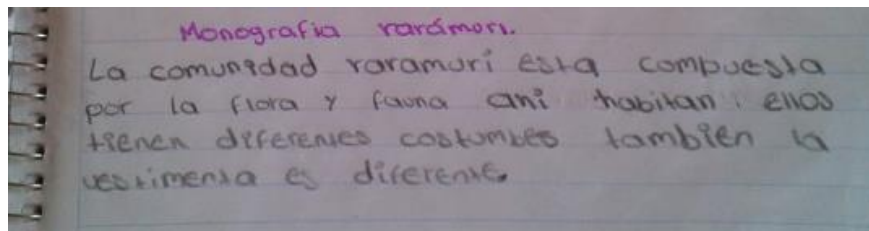 Monografia rarámori.
La comunidad raramuri esta compuesta
por la flora y fauna ani habitan ellos
tienen diferentes costumbes también la
vestimenta es diferente.